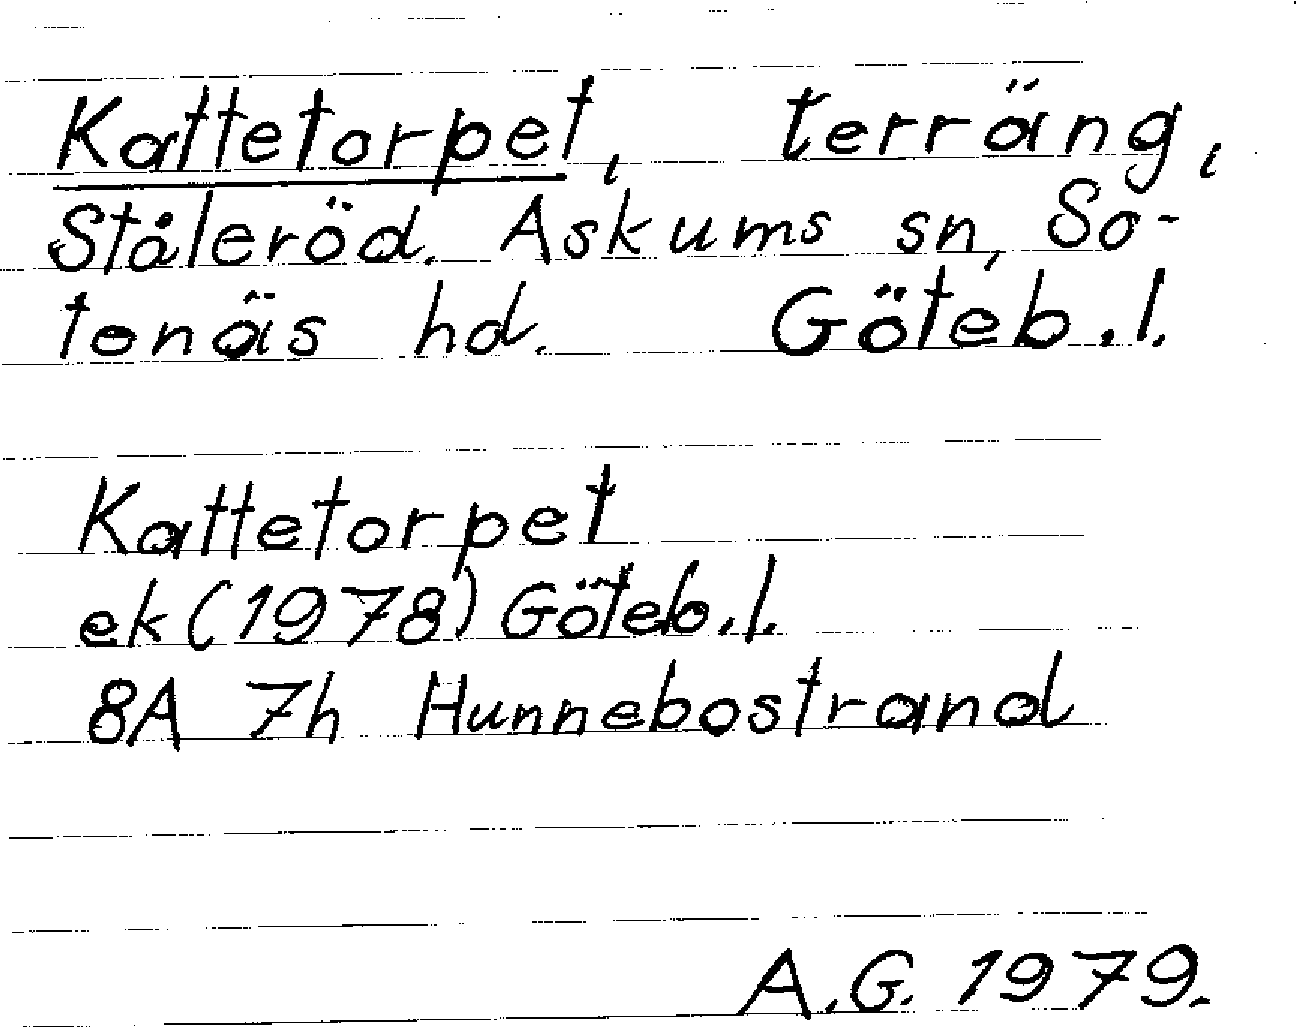 Kattetorpet, terräng,
Ståleröd. Askums sn, So-
tenäs hd. Göteb.l.
Kattetorpet
ek (1978) Göteb.l.
8A 7h Hunnebostrand
A.G. 1979.